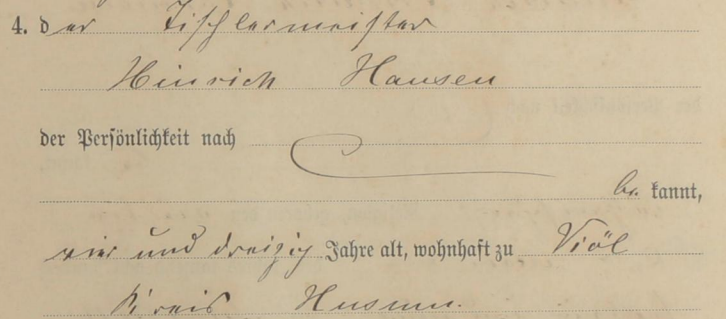 4. der Tischlermeister
Hinrich Hansen
der Persönlichkeit nach
be kannt,
vier und dreizig Jahre alt, wohnhaft zu Viöl
Kreis Husum.